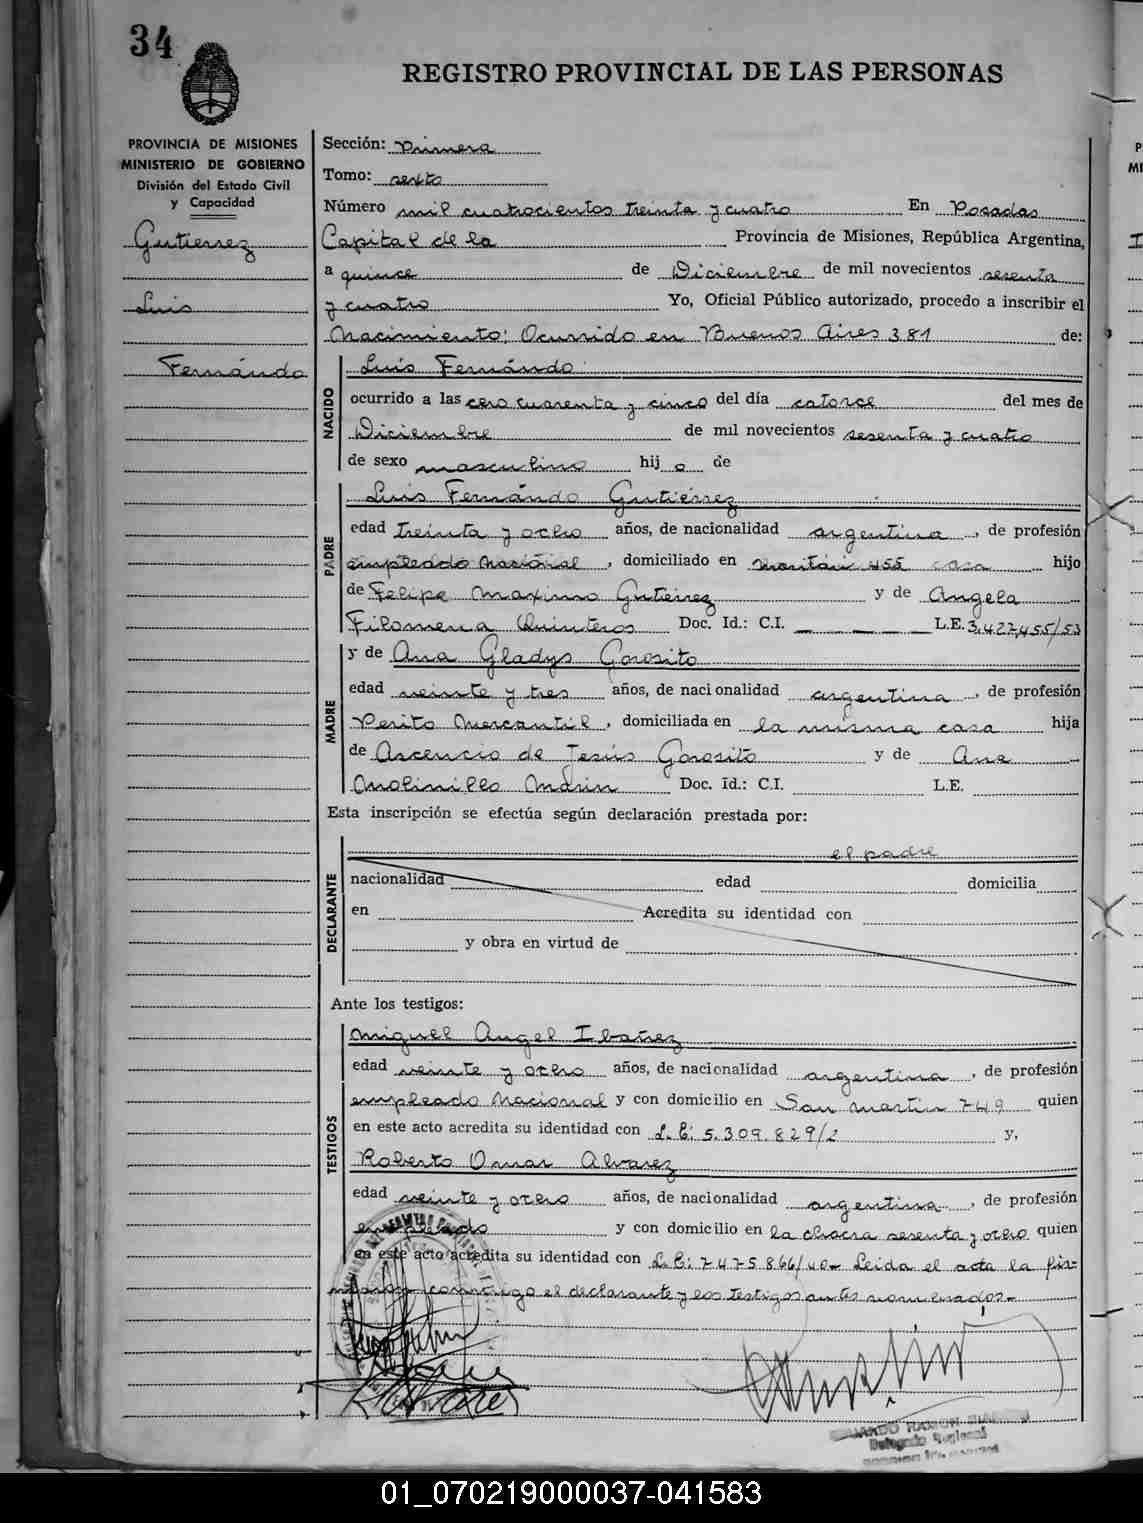 34
REGISTRO PROVINCIAL DE LAS PERSONAS
PROVINCIA DE MISIONES
MINISTERIO DE GOBIERNO
División del Estado Civil
y Capacidad
Gutierrez
Luis
Fernándo
Sección: Primera
Tomo: sexto
Número mil cuatrocientos treinta y cuatro En Posadas
Capital de la Provincia de Misiones, República Argentina,
a quince de Diciembre de mil novecientos sesenta
y cuatro Yo, Oficial Público autorizado, procedo a inscribir el
Nacimiento: Ocurrido en Buenos Aires 381 de:
NACIDO
Luis Fernándo
ocurrido a las cero cuarenta y cinco del día catorce del mes de
Diciembre de mil novecientos sesenta y cuatro
de sexo masculino hij o de
PADRE
Luis Fernándo Gutiérrez
edad treinta y ocho años, de nacionalidad argentina, de profesión
empleado Nacional, domiciliado en 455 casa hijo
de Felipe Maximo Gutierrez y de Angela
Filomena Quinteros Doc. Id.: C.I. — — — L.E. 3.427.455/53
MADRE
y de Ana Gladys Gorosito
edad veinte y tres años, de nacionalidad argentina, de profesión
Perito Mercantil, domiciliada en la misma casa hija
de Ascencio de Jesús Gorosito y de Ana
Molinillo Doc. Id.: C.I. L.E.
Esta inscripción se efectúa según declaración prestada por:
DECLARANTE
el padre
nacionalidad edad domicilia
en Acredita su identidad con
y obra en virtud de
Ante los testigos:
TESTIGOS
Miguel Angel Ibañez
edad veinte y ocho años, de nacionalidad argentina, de profesión
empleado Nacional y con domicilio en San Martin 749 quien
en este acto acredita su identidad con L.E: 5.309.829/2 y,
Roberto Omar Alvarez
edad veinte y ocho años, de nacionalidad argentina, de profesión
empleado y con domicilio en la chacra sesenta y ocho quien
en este acto acredita su identidad con L.E: 7475866/40- Leida el acta la fir-
conmigo el declarante y los testigos antes nombrados.-
RAMON
Delegado Regional
01_070219000037-041583